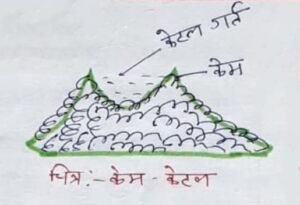 केटल गर्त
केम
चित्र :- केम - केटल